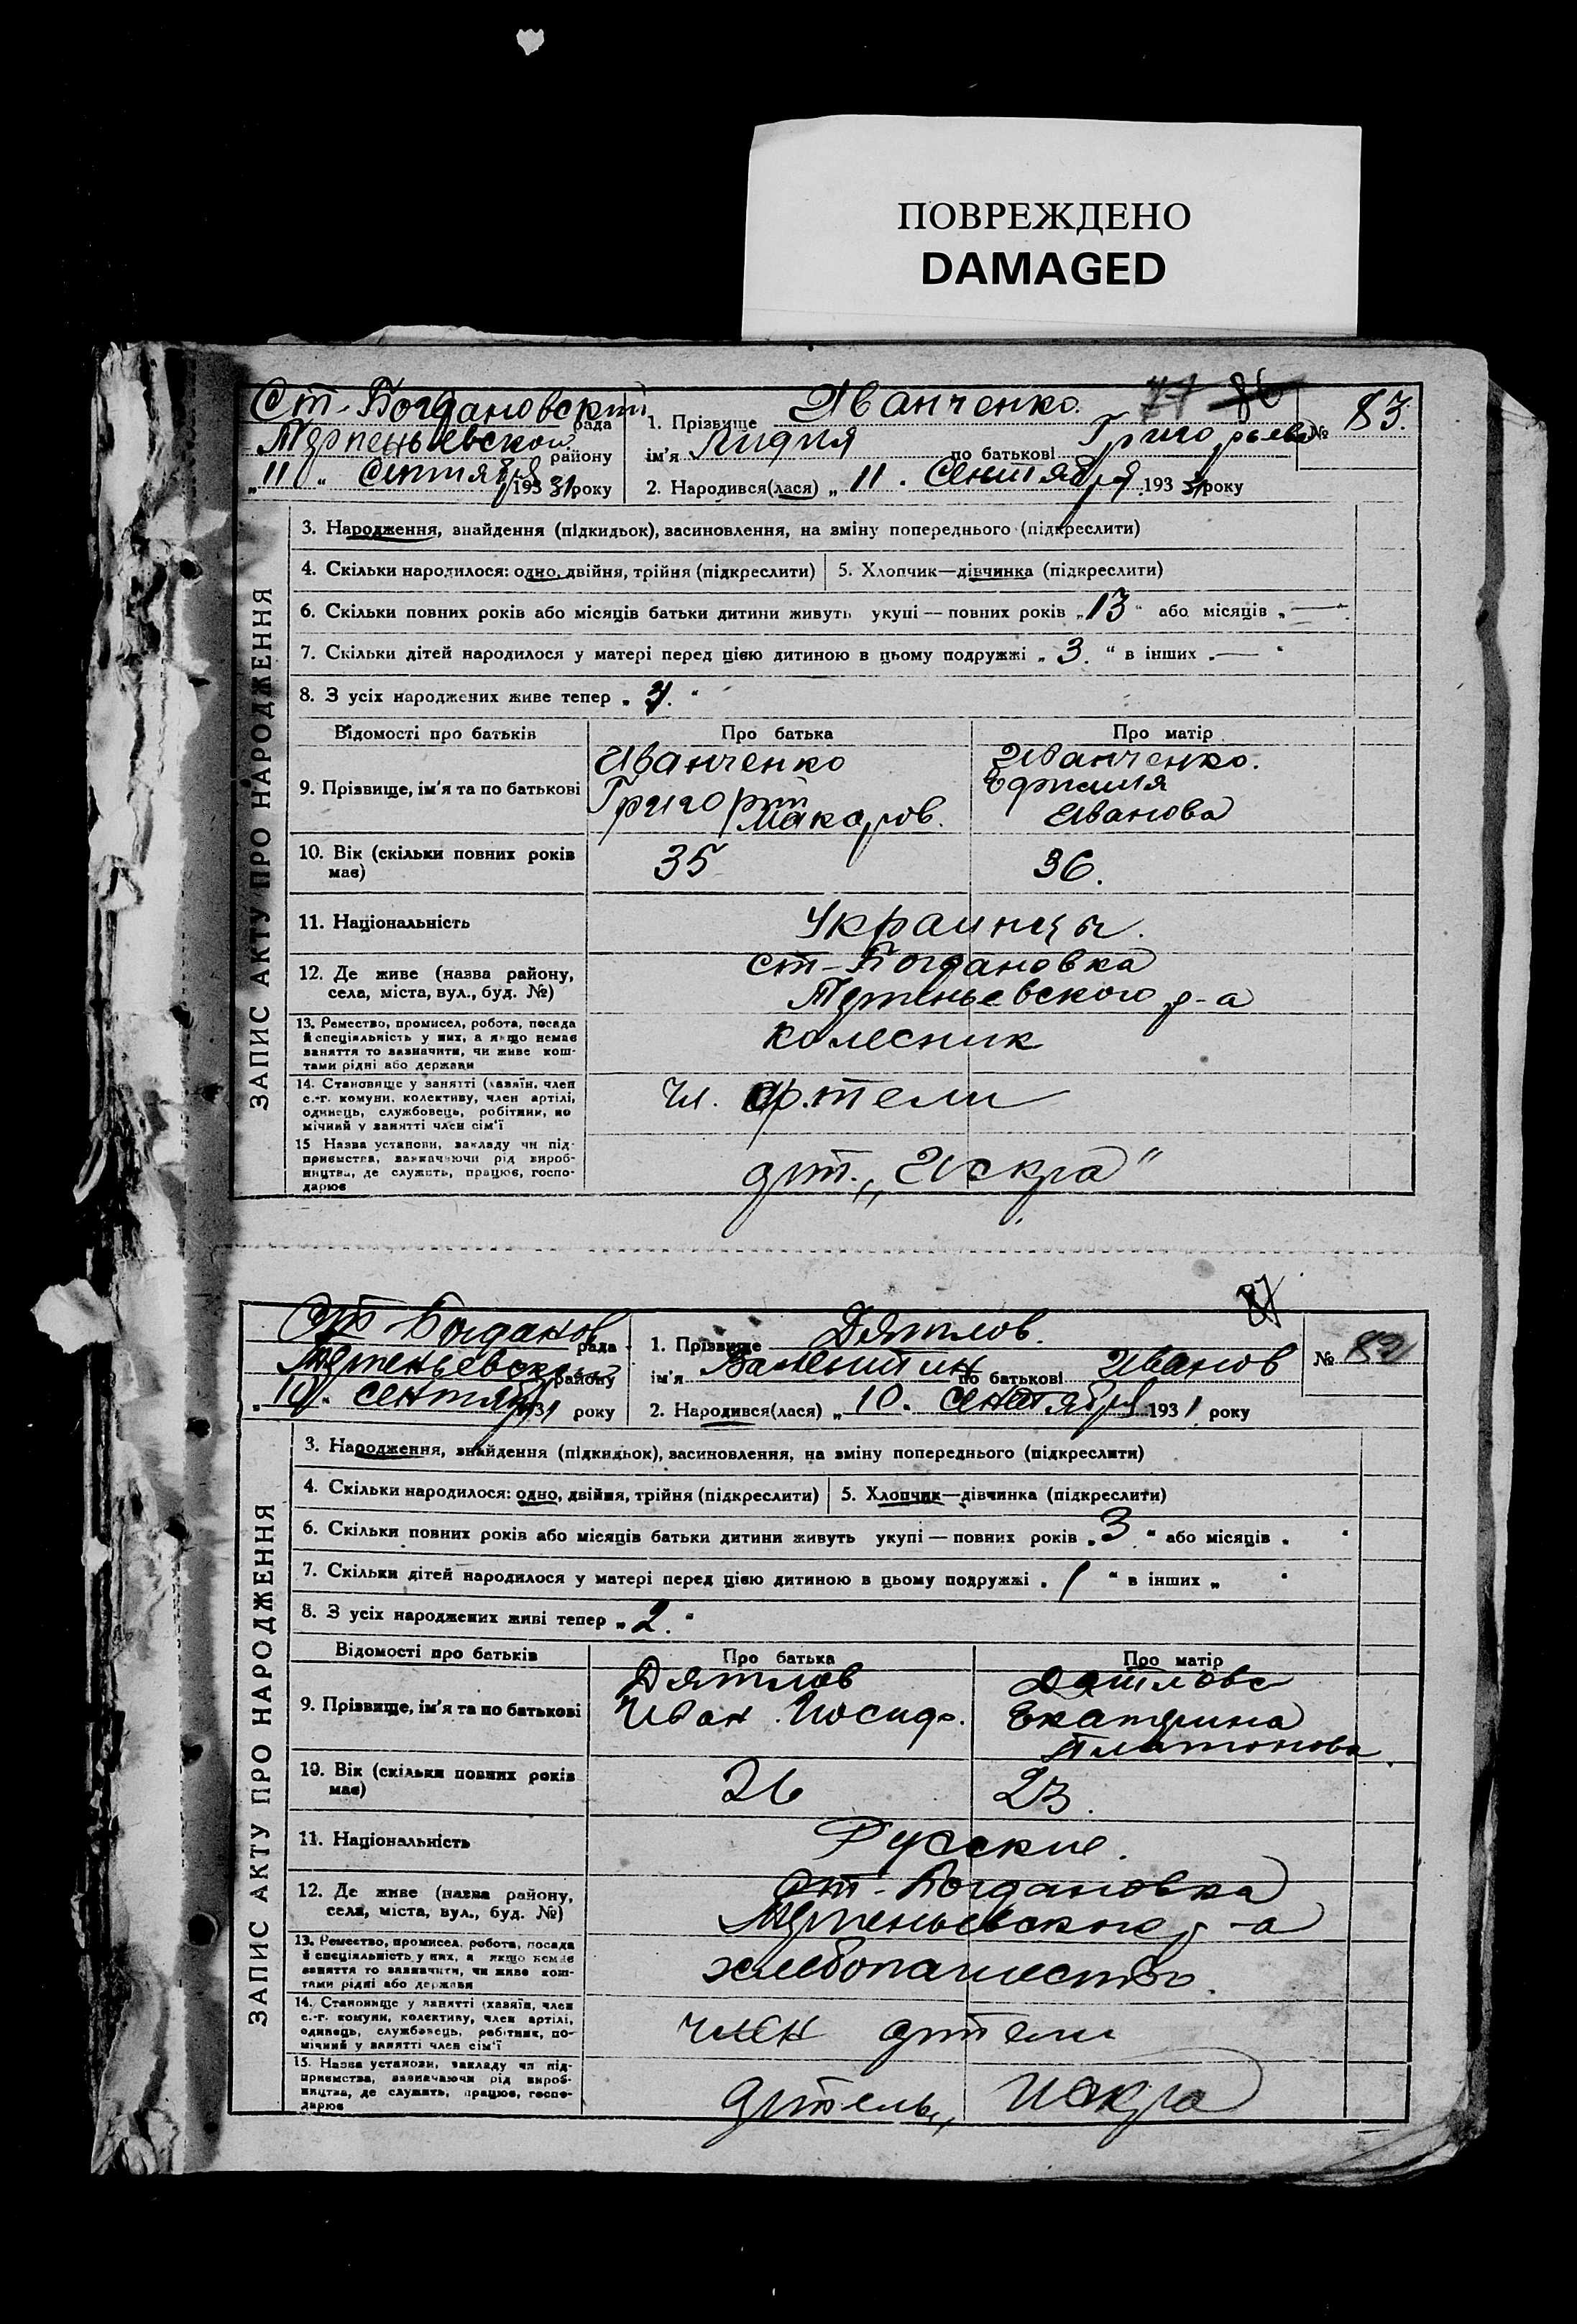 ПОВРЕЖДЕНО
DAMAGED
Ст-Богдановский рада
Терпеньевской району
„11“ Сентября 1931 року
1. Прізвище Иванченко. 77 86
ім'я Лидия по батькові Григорьева
№ 83.
2. Народився(лася) „11. Сентября 1931 року
ЗАПИС АКТУ ПРО НАРОДЖЕННЯ
3. Народження, знайдення (підкидьок), засиновлення, на зміну попереднього (підкреслити)
4. Скільки народилося: одно, двійня, трійня (підкреслити)
5. Хлопчик—дівчинка (підкреслити)
6. Скільки повних років або місяців батьки дитини живуть укупі — повних років „13“ або місяців „—“
7. Скільки дітей народилося у матері перед цією дитиною в цьому подружжі „3.“ в інших „—“
8. З усіх народжених живе тепер „ “
Відомості про батьків Про батька Про матір
9. Прізвище, ім'я та по батькові
Иванченко
Григорий
Макаров.
Иванченко.
Ефимия
Иванова
10. Вік (скільки повних років має) 35 36.
11. Національність Украинцы.
12. Де живе (назва району, села, міста, вул., буд. №)
ст-Богдановка
Терпеньевского р-а
13. Ремество, промисел, робота, посада
й спеціяльність у них, а якщо немає
заняття то зазначити, чи живе кош-
тами рідні або держави
колесник
14. Становище у занятті (хазяїн, член
с.-г. комуни, колективу, член артілі,
одинець, службовець, робітник, по
мічний у занятті член сім'ї
чл. артели
15 Назва установи, закладу чи під-
приємства, зазначаючи рід вироб-
ництва, де служить, працює, госпо-
дарює
арт. „Искра“
87
Ст-Богданов рада
Терпеньевской району
„10“ сентября 1931 року
1. Прізвище Дятлов.
ім'я Валентин по батькові Иванов
№ 82
2. Народився(лася) „10. Сентября 1931 року
ЗАПИС АКТУ ПРО НАРОДЖЕННЯ
3. Народження, знайдення (підкидьок), засиновлення, на зміну попереднього (підкреслити)
4. Скільки народилося: одно, двійня, трійня (підкреслити)
5. Хлопчик—дівчинка (підкреслити)
6. Скільки повних років або місяців батьки дитини живуть укупі — повних років „3“ або місяців „ “
7. Скільки дітей народилося у матері перед цією дитиною в цьому подружжі „1“ в інших „ “
8. З усіх народжених живі тепер „2.“
Відомості про батьків Про батька Про матір
9. Прізвище, ім'я та по батькові
Дятлов
Иван Иосиф.
Дятлова
Екатерина
Платонова
10. Вік (скільки повних років має) 26 23.
11. Національність Русские.
12. Де живе (назва району, села, міста, вул., буд. №)
Ст-Богдановка
Терпеньевского р-а
13. Ремество, промисел, робота, посада
й спеціяльність у них, а якщо немає
заняття то зазначити, чи живе кош-
тами рідні або держави
хлебопашество.
14. Становище у занятті (хазяїн, член
с.-г. комуни, колективу, член артілі,
одинець, службовець, робітник, по-
мічний у занятті член сім'ї
член артели
15. Назва установи, закладу чи під-
приємства, зазначаючи рід вироб-
ництва, де служить, працює, госпо-
дарює
артель „Искра